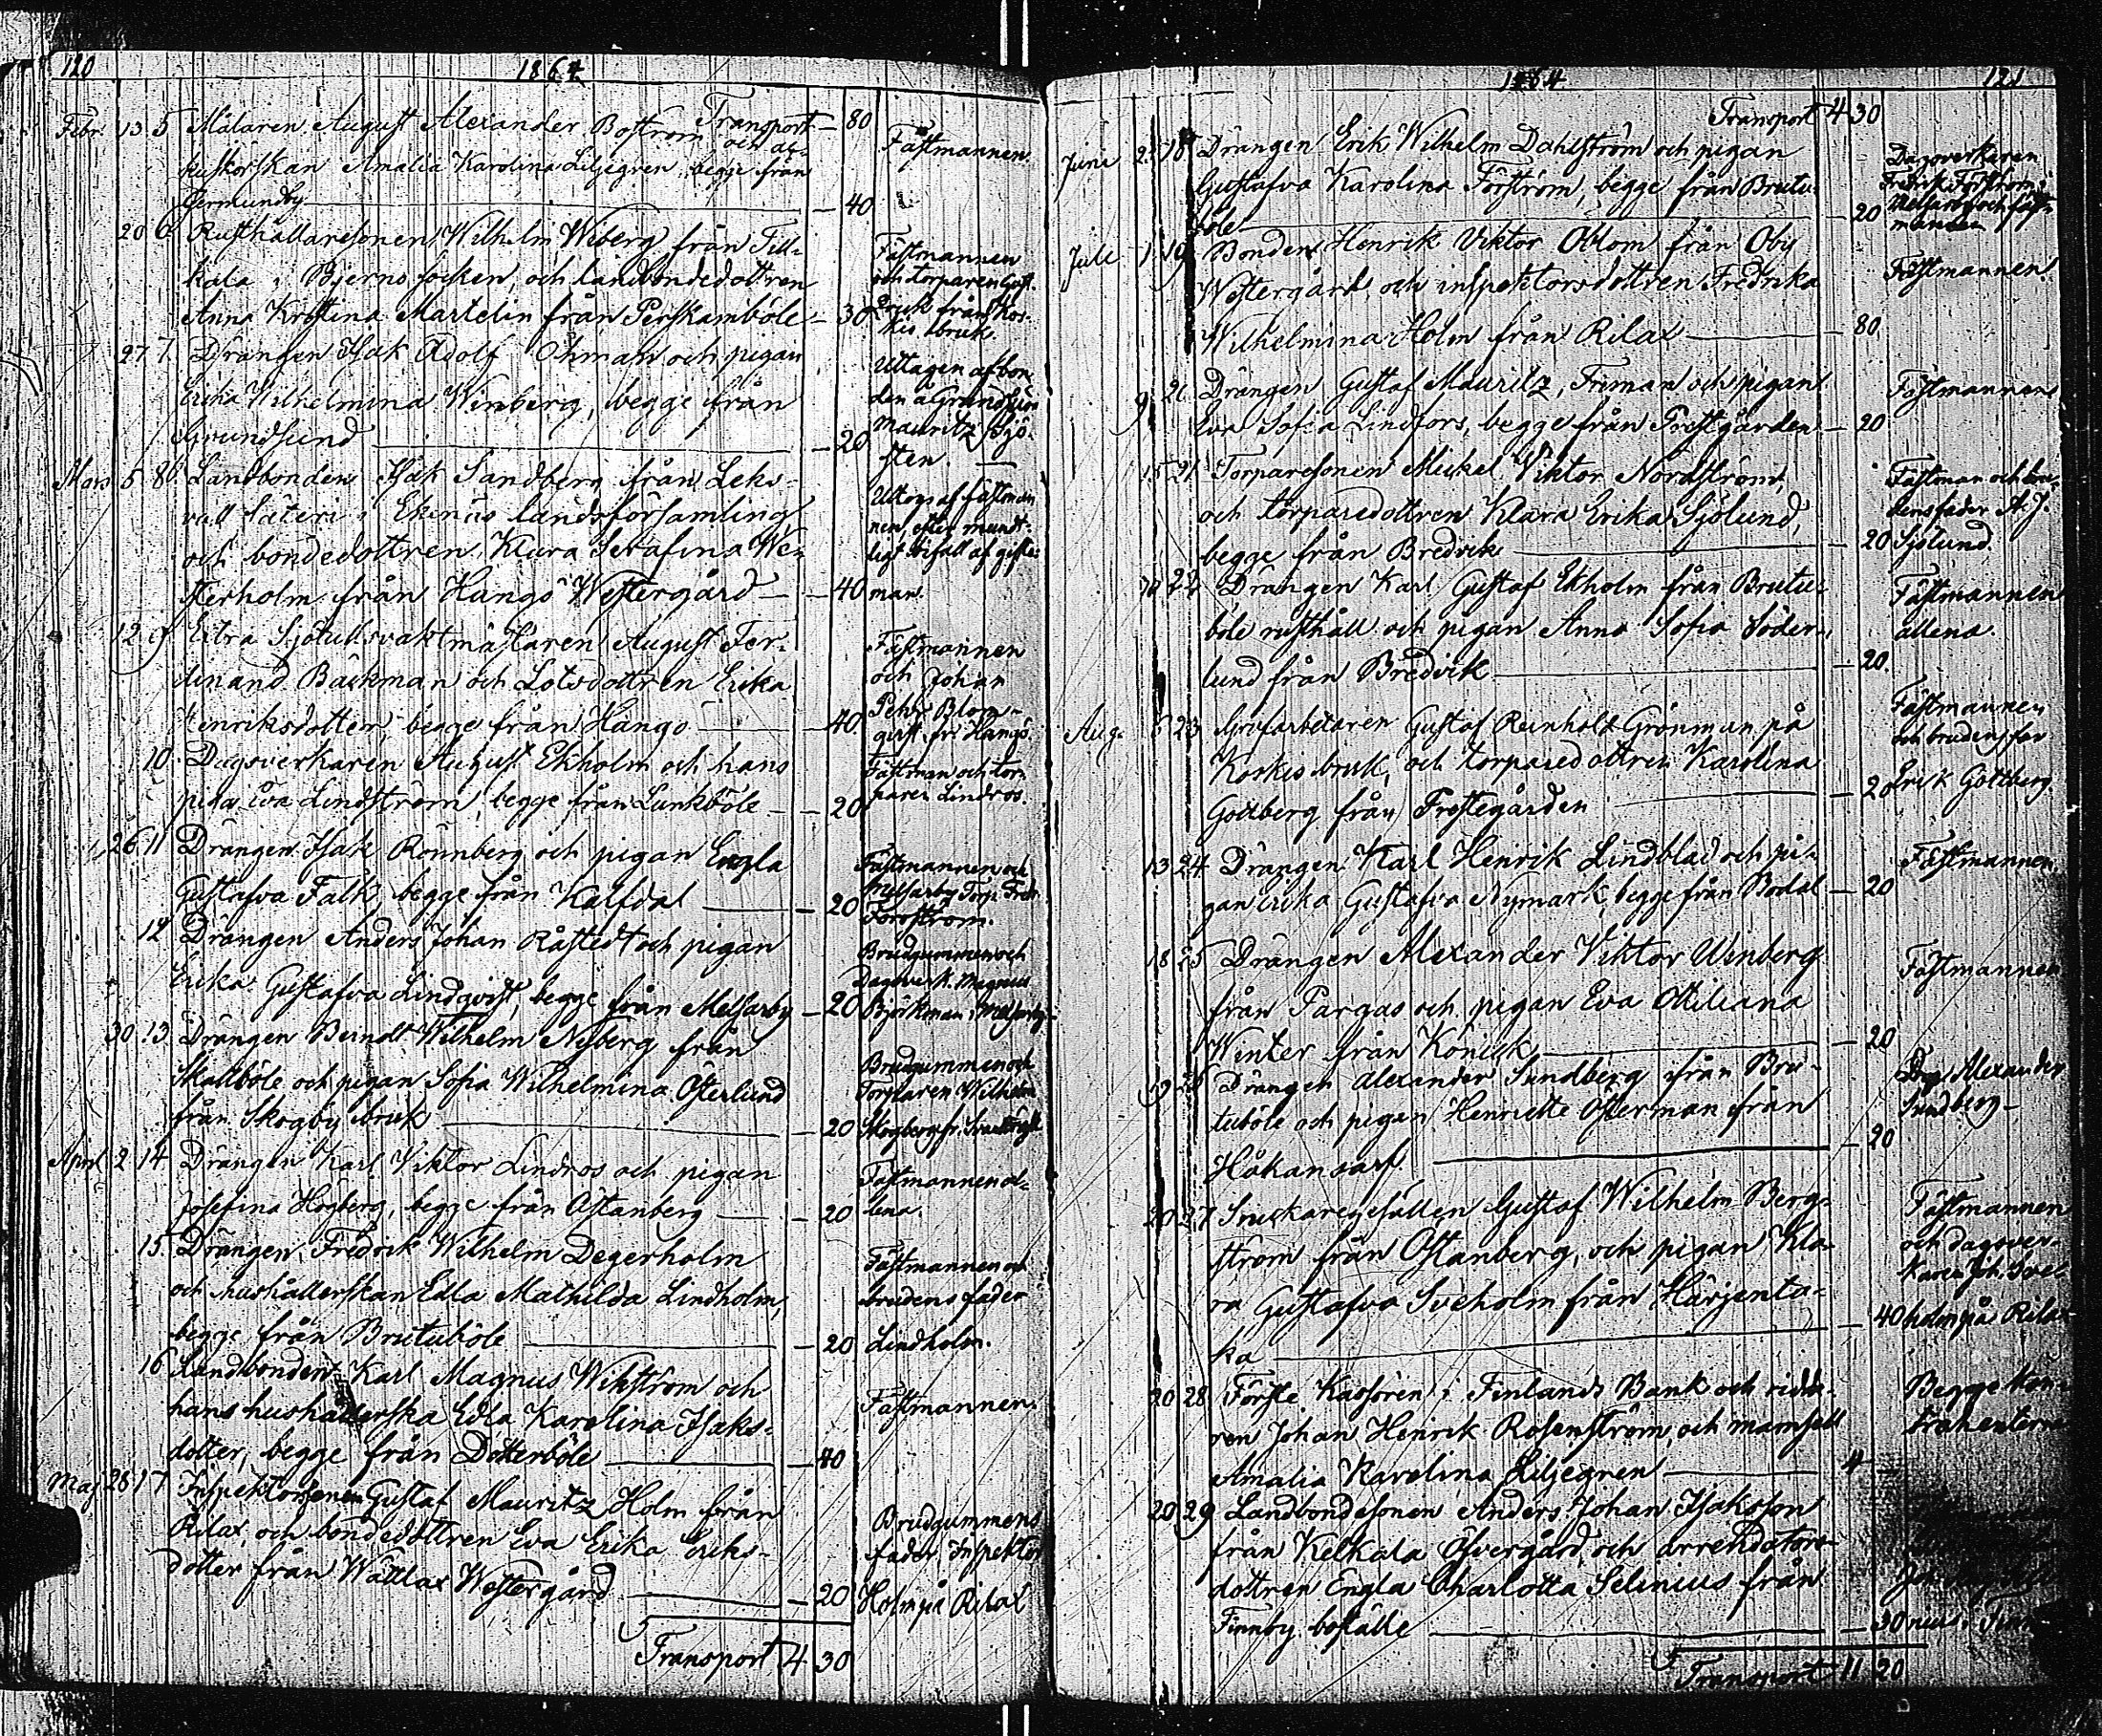 120
1864
Transport — 80
Febr. 13 5 Målaren August Alexander Boström och
Amalia Karolina Liljegren, begge från
Germundby — 40
Fästmannen
20 6 Rusthållaresonen Wilhelm Wiberg från Till-
kala i Bjerno socken, och landbondedottren
Anna Kristina Martelin från Perskamböle — 30
Fästmannen
och torparen Gust.
från Kos-
kis bruk.
27 7 Drängen Isak Adolf Öhman och pigan
Erika Wilhelmina Winberg, begge från
Grundsund — 20
Uttagen af bon
den å Grundsun
Mauritz Sjö-
sten.
Mars 5 8 Landbonden Isak Sandberg från Leks-
vall säteri i Ekenäs landsförsamling
och bondedottren Klara Serafina We-
sterholm från Hangö Westergård — 40
Uttogs af fästman
nen, efter munt-
ligt bifall af gifto-
man.
12 9 Extra Sjötullsvaktmästaren August Fer-
dinand Bäckman och Lotsdottren Erika
Henriksdotter, begge från Hangö — 40
Fästmannen
och Johan
Pehr Blom-
qvist fr. Hangö.
10 Dagsverkaren August Ekholm och hans
piga Eva Lindström, begge från Lunkböle — 20
Fästman och tor-
paren Lindros.
26 11 Drängen Isak Rönnberg och pigan Engla
Gustafva Falk, begge från Kalfdal — 20
Fästmannen och
Melsarby Torp. Fredr.
Forsström.
12 Drängen Anders Johan Råstedt och pigan
Erika Gustafva Lindqvist, begge från Melsarby — 20
Brudgummen och
Dagsverk. Magnus
Björkman, Melsarby
30 13 Drängen Berndt Wilhelm Nyberg från
Skallböle och pigan Sofia Wilhelmina Österlund
från Skogby bruk — 20
Brudgummen och
Torparen Wilhelm
Skogberg fr.
April 2 14 Drängen Karl Viktor Lindros och pigan
Josefina Högberg, begge från Östanberg — 20
Fästmannen al-
lena.
15 Drängen Fredrik Wilhelm Degerholm
och hushållerskan Edla Mathilda Lindholm,
begge från Brutuböle — 20
Fästmannen och
brudens fader
Lindholm.
16 Landbonden Karl Magnus Wikström och
hans hushållerska Edla Karolina Isaks-
dotter, begge från Dotterböle — 40
Fästmannen.
Maj 28 17 Inspektorsonen Gustaf Mauritz Holm från
Rilax, och bondedottren Eva Erika Eriks-
dotter från Wättlax Westergård — 20
Brudgummens
fader, Inspektor
Holm på Rilax
Transport 4 30
1864
121
Transport 4 30
Juni 25 18 Drängen Erik Wilhelm Dahlström och pigan
Gustafva Karolina Forström, begge från Brutu-
böle — 20
Dagsverkaren
Fredrik Forström i
Melsarby och fäst-
mannen
Juli 1 19 Bonden Henrik Viktor Oblom från Öby
Westergård, och inspektorsdottren Fredrika
Wilhelmina Holm från Rilax — 80
Fästmannen
9 20 Drängen Gustaf Mauritz Friman och pigan
Eva Sofia Lindfors, begge från Prostgården — 20
Fästmannen
15 21 Torparesonen Mickel Viktor Nordström,
och torparedottren Klara Erika Sjölund,
begge från Bredvik — 20
Fästman och bru-
dens fader A. J.
Sjölund.
22 Drängen Karl Gustaf Ekholm från Brutu-
böle rusthåll och pigan Anna Sofia Söder-
lund från Bredvik — 20.
Fästmannen
allena.
Aug. 6 23 Grufarbetaren Gustaf Reinhold Grönman på
Koskis bruk, och torparedottren Karolina
Gottberg från Prostegården — 20
Fästmannen
och brudens far
Erik Gottberg.
13 24 Drängen Karl Henrik Lindblad och pi-
gan Erika Gustafva Nymark, begge från Bodal — 20
Fästmannen.
18 25 Drängen Alexander Viktor Winberg
från Pargas och pigan Eva Ottiliana
Winter från Könick — 20
Fästmannen
19 26 Drängen Alexander Sundberg från Bru-
tuböle och pigan Henriette Österman från
Håkansarf. — 20
Drg. Alexander
Sundberg —
20 27 Snickaregesällen Gustaf Wilhelm Berg-
ström från Östanberg, och pigan Kla-
ra Gustafva Sveholm från Härjenta-
ka — 40
Fästmannen
och dagsver-
karen Joh. Sve-
holm på Rilax
20 28 Förste Kassören i Finlands Bank och ridda-
ren Johan Henrik Rosenström, och mamsell
Amalia Karolina Liljegren — 4 —
Begge kon-
trahenterna
20 29 Landbondesonen Anders Johan Isaksson
från Kelkala Öfvergård, och arrendators-
dottren Engla Charlotta Selinius från
Finnby boställe — 30
Transport 11 20